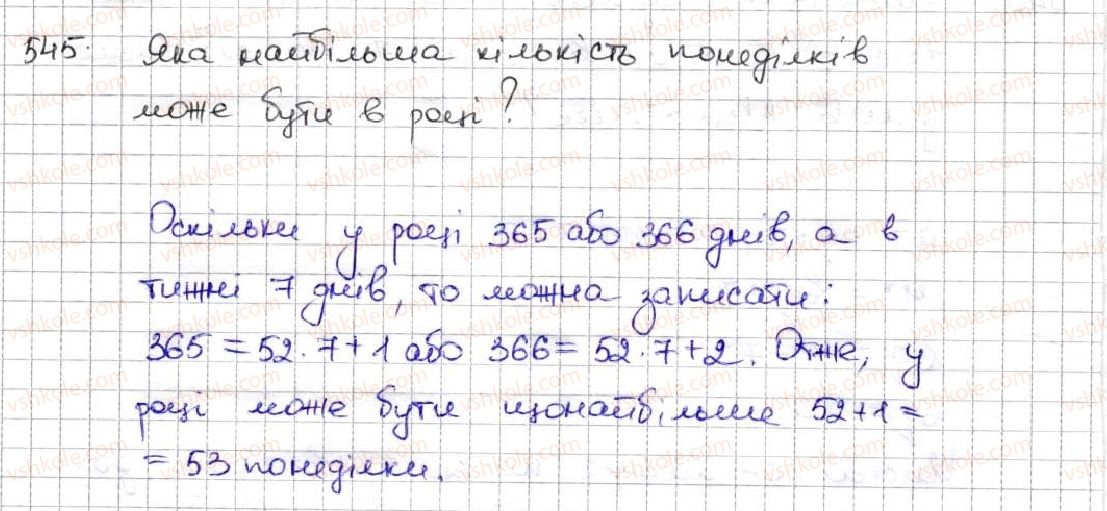 545. Яка найбільша кількість понеділків
може бути в році?
Оскільки у році 365 або 366 днів, а в
тижні 7 днів, то можна записати:
365 = 52 · 7 + 1 або 366 = 52 · 7 + 2. Отже, у
році може бути щонайбільше 52 + 1 =
= 53 понеділки.